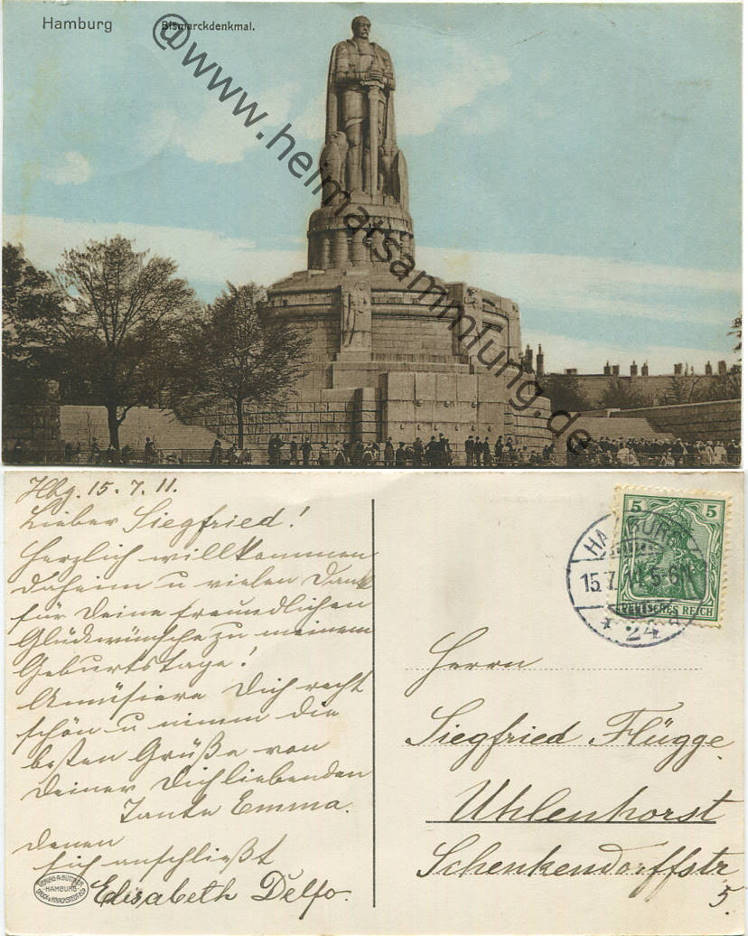 Hamburg Bismarckdenkmal.
@www.heimatsammlung.de
Hbg. 15.7.11.
Lieber Siegfried!
Herzlich willkommen
daheim u vielen Dank
für Deine freundlichen
Glückwünsche zu meinem
Geburtstage!
Amüsiere Dich recht
schön u nimm die
besten Grüße von
Deiner Dich liebenden
Tante Emma.
denen
sich anschließt
Elisabeth Delfo.
HAMBURG
5 5
HAMBURG
15.7.11.5-6N
* 24 d
DEUTSCHES REICH
Herrn
Siegfried Flügge.
Uhlenhorst
Schenkendorffstr
5.